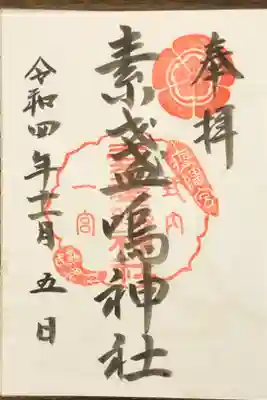 奉拝
素盞嗚神社
令和四年十一月五日